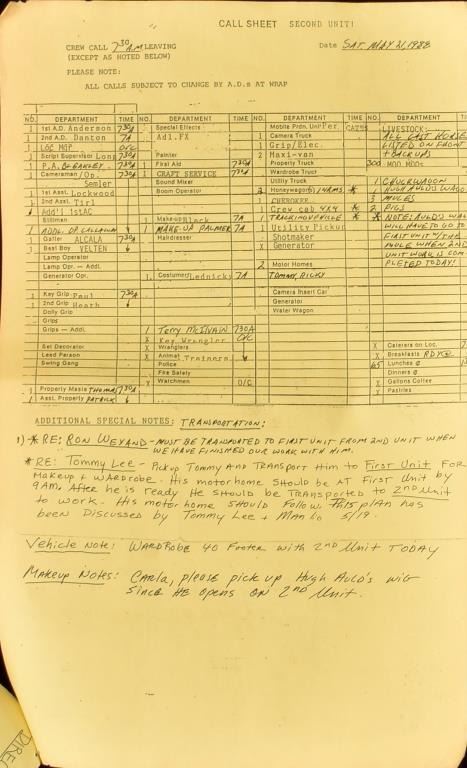 CALL SHEET SECOND UNIT!
CREW CALL 7 30 AM LEAVING
Date SAT. MAY 21, 1988
(EXCEPT AS NOTED BELOW)
PLEASE NOTE:
ALL CALLS SUBJECT TO CHANGE BY A.D.s AT WRAP
NO. DEPARTMENT TIME NO. DEPARTMENT TIME NO. DEPARTMENT TIME NO. DEPARTMENT TIME
1 1st A.D. Anderson 730A Special Effects Mobile Prdn. Unit Per. CAPTS LIVESTOCK:
1 2nd A.D. Danton 7A Adl.FX 1 Camera Truck ALL CAST HORSE
1 LOC MGR O/C 1 Grip/Elec. LISTED ON FRONT
1 Script Supervisor Long 730A Painter 2 Maxi-van + BACKUPS
1 P.A. 730A 1 First Aid 730A Property Truck 300 MOO MOOs
1 Cameraman/Op. 730A 1 CRAFT SERVICE 730A Wardrobe Truck
Semler Sound Mixer Utility Truck 1 CHUCKWAGON
1 1st Asst. Lockwood Boom Operator 2 Honeywagon(s) * 1 HUGH AULD'S WAGO
1 2nd Asst. 1 CHEROKEE 3 MULES
1 Add'l 1stAC 1 Crew cab 4X4 * 2 PIGS
Stillman 1 Make-up Block 7A 1 * * NOTE: AULD'S WA
1 ADDL. OP CALLAWAY 1 MAKE-UP PALMER 7A 1 Utility Pickup WILL HAVE TO GO TO
1 Gaffer ALCALA 730A Hairdresser 1 Shotmaker FIRST UNIT W/THE
1 Best Boy VELTEN X Generator MULE WHEN 2ND
Lamp Operator UNIT WORK IS COM
Lamp Opr. — Addl. 2 Motor Homes PLETED TODAY!
Generator Opr. 1 Costumer Lednicky 7A TOMMY, RICKY
1 Key Grip Paul 730A Camera Insert Car
1 2nd Grip Heath Generator
Dolly Grip Water Wagon
Grips
Grips — Addl. 1 Terry McIlvain 730A
X Key Wrangler O/C
Set Decorator X Wranglers X Caterers on Loc.
Lead Person X Animal Trainers X Breakfasts RDY@
Swing Gang Police 65 Lunches @
Fire Safety Dinners @
X Watchmen O/C X Gallons Coffee
1 Property Master THOMAS 730A X Pastries
1 Asst. Property PATRICK
ADDITIONAL SPECIAL NOTES: TRANSPORTATION:
1) * RE: RON WEYAND - MUST BE TRANSPORTED TO FIRST UNIT FROM 2ND UNIT WHEN
WE HAVE FINISHED OUR WORK WITH HIM.
* RE: Tommy Lee - Pick up Tommy AND TRANSPORT Him to First Unit FOR
Makeup + WARDROBE. His motorhome Should be AT First Unit by
9AM. After he is ready He should be TRANSPORTED to 2nd Unit
to work. His motor home Should follow. This plan has
been Discussed by Tommy Lee + Manlo 5/19.
Vehicle Note: WARDROBE 40 Footer with 2nd Unit TODAY
MAKEUP NOTES: Carla, please pick up Hugh Auld's wig
since HE opens on 2nd Unit.
DIREC